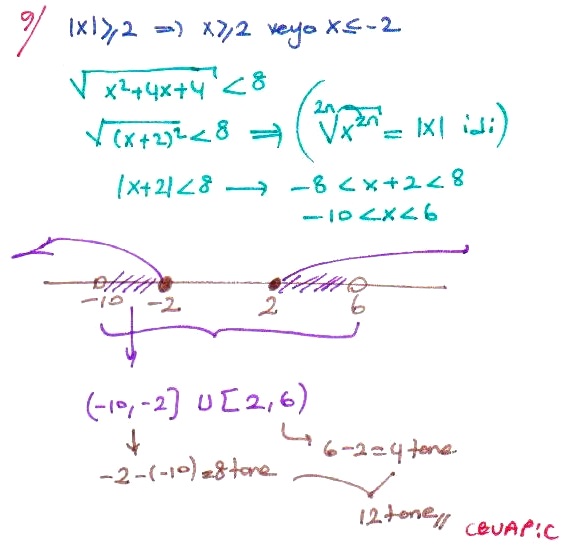 9/ |x|⩾2 ⇒ x⩾2 veya x≤-2
√(x²+4x+4) < 8
√((x+2)²) < 8 ⇒ (²ⁿ√(x²ⁿ) = |x| idi)
|x+2|<8 → -8 < x+2 < 8
-10 < x < 6
-10 -2 2 6
(-10,-2] ∪ [2,6)
6-2=4 tane
-2-(-10)=8 tane
12 tane //
CEVAP: C